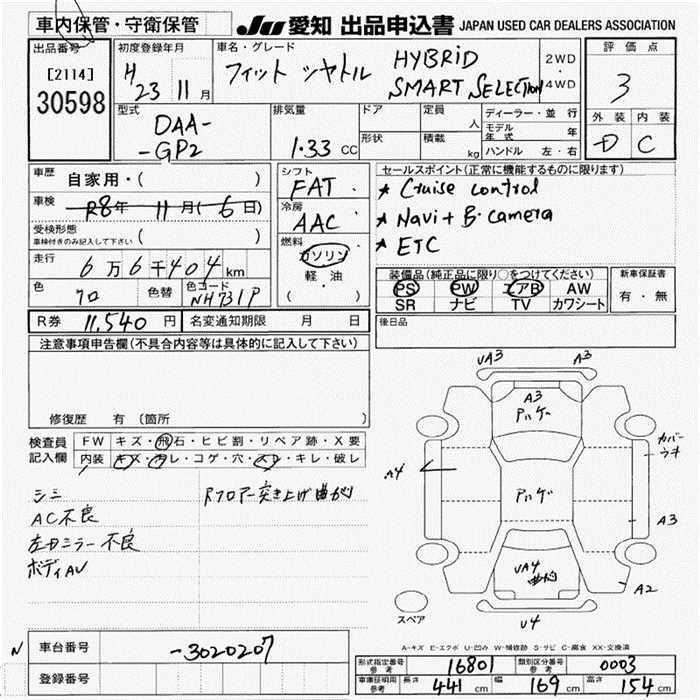 車内保管・守衛保管
JU 愛知 出品申込書 JAPAN USED CAR DEALERS ASSOCIATION
出品番号
[2114]
30598
初度登録年月
H 23 11 月
車名・グレード
フィット シャトル HYBRID
SMART SELECTION
2WD
・
4WD
評価点
3
外装 内装
D C
型式
DAA-
-GP2
排気量
1.33 CC
ドア
形状
定員
人
積載
kg
ディーラー・並行
モデル年式 年
ハンドル 左・右
車歴
自家用・( )
車検
R8年 11月(6日)
受検形態
車検付きのみ記入して下さい ( )
走行
6万6千404km
色
クロ
色替
色コード
NH731P
シフト
FAT
冷房
AAC
燃料
ガソリン
軽・油
( ・ )
セールスポイント(正常に機能するものに限ります)
★ Cruise control
★ Navi + B. camera
★ ETC
装備品(純正品に限り○をつけてください)
PS PW エアB AW
SR ナビ TV カワシート
新車保証書
有・無
R券 11,540 円
名変通知期限 月 日
後日品
注意事項申告欄(不具合内容等は具体的に記入して下さい)
修復歴 有 〔箇所 〕
検査員
記入欄
FW キズ・飛石・ヒビ割・リペア跡・X要
内装 キズ・ヨゴレ・コゲ・穴・スレ・キレ・破レ
シミ
AC不良
左Dミラー不良
ボディAU
Rフロアー突き上げ曲がり
UA3 A3
A3
アハゲ
カバー
ウキ
A4
アハゲ
A3
UA4
曲がり
A2
スペア
U4
A-キズ E-エクボ U-凹み W-補修跡 S-サビ C-腐食 XX-交換済
N
車台番号
-3020207
登録番号
形式指定番号
参考
16801
類別区分番号
参考
0003
車庫証明用
参考
長さ 441 cm 幅 169 cm 高さ 154 cm